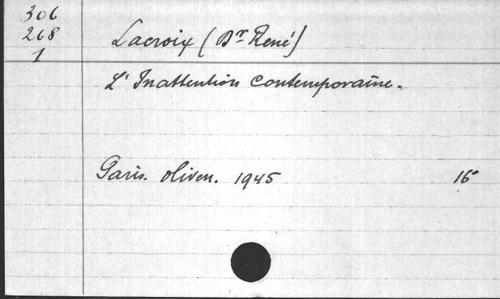 306
268
1
Lacroix (Dr René)
L'Inattention contemporaine.
Paris. Oliven. 1945 16°